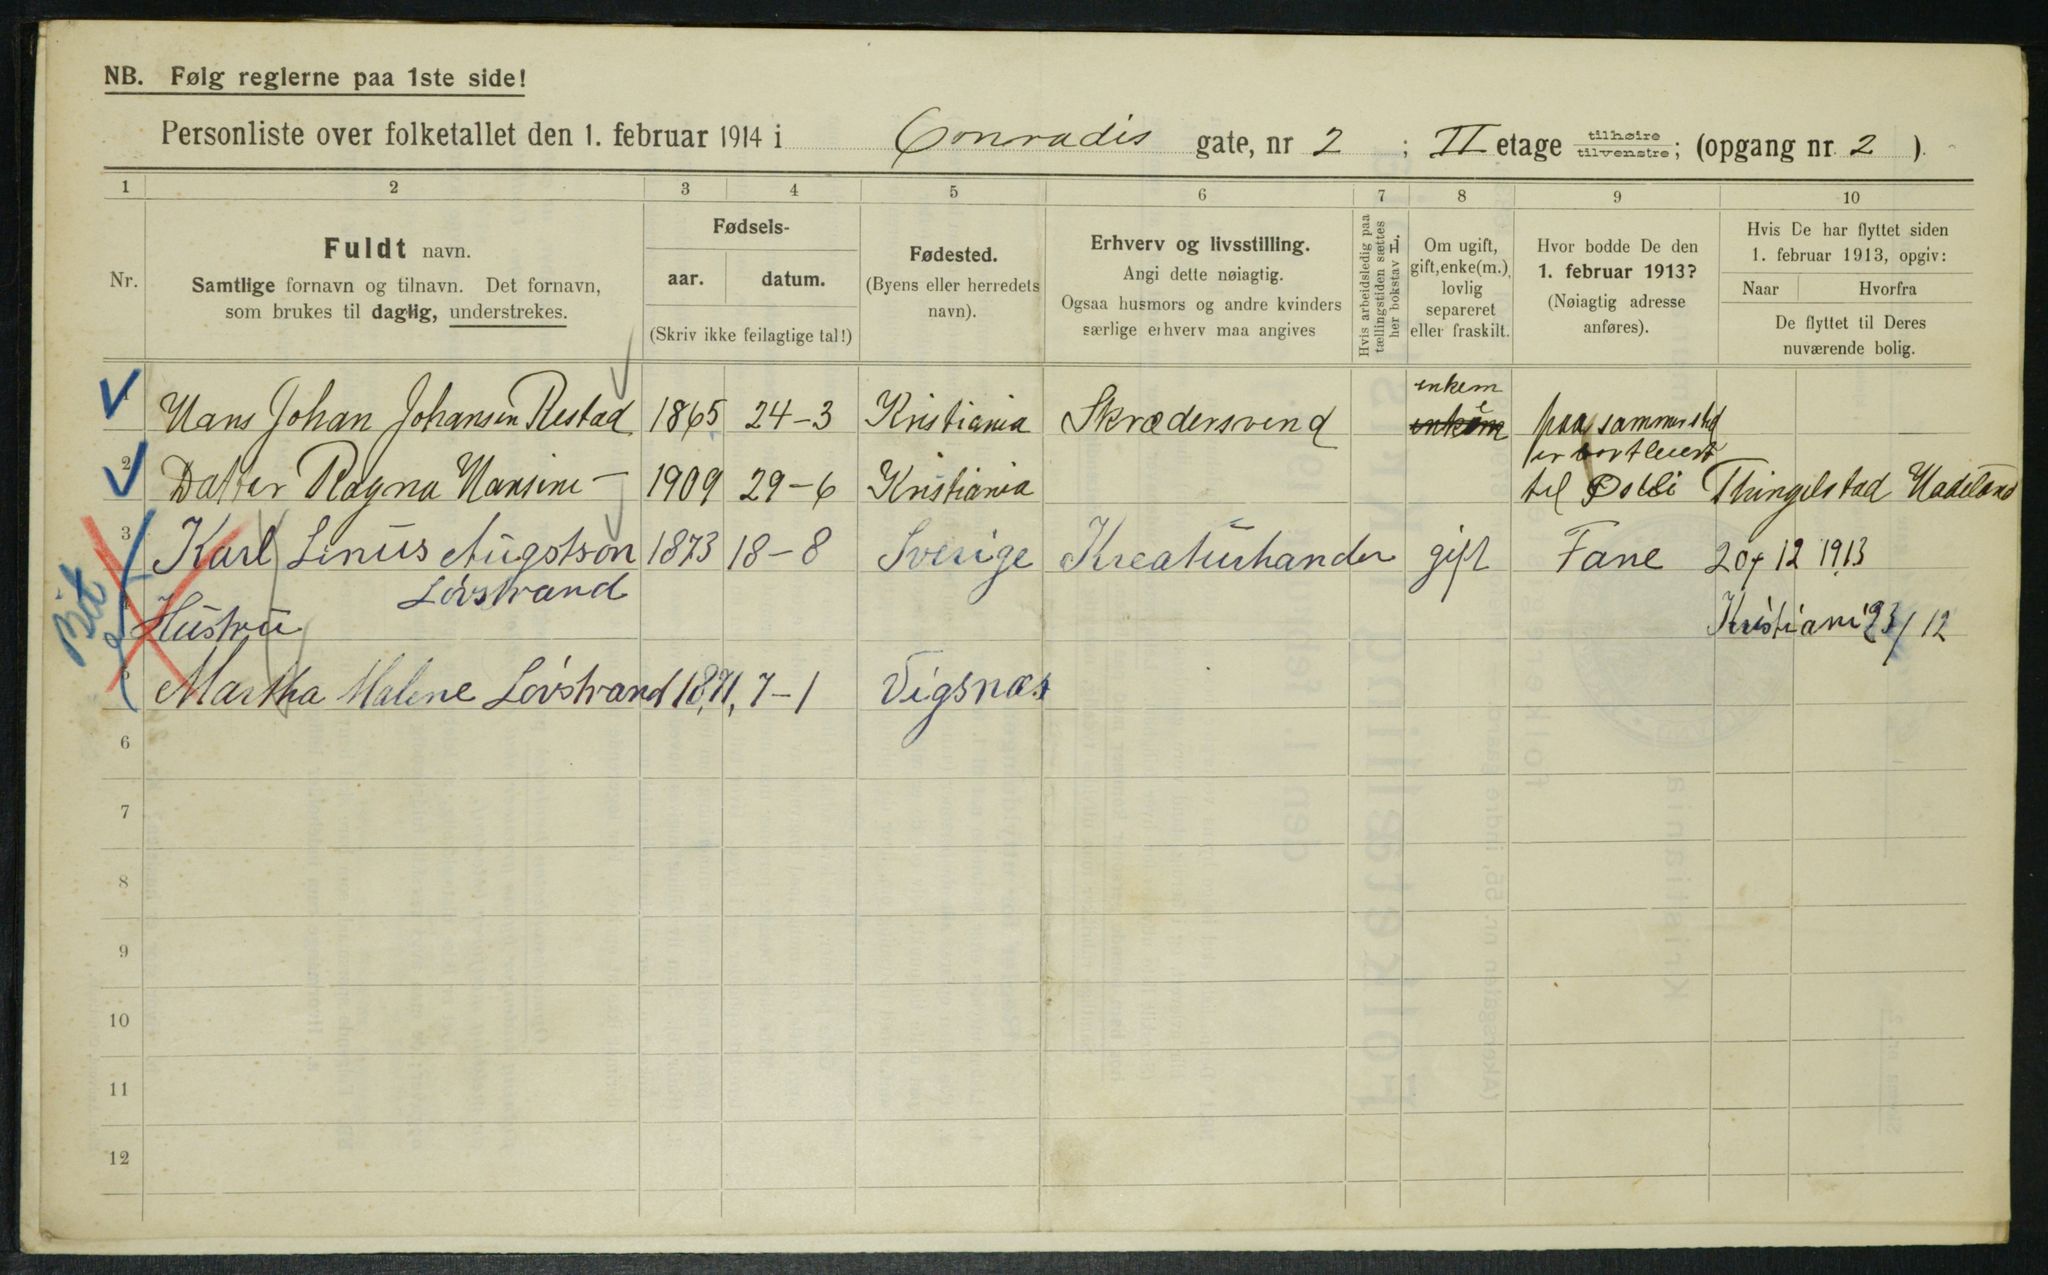 NB. Følg reglerne paa 1ste side!
Personliste over folketallet den 1. februar 1914 i Conradis gate, nr 2 ; II etage tilhøire tilvenstre; (opgang nr. 2 ).
1 2 3 4 5 6 7 8 9 10
Nr.
Fuldt navn.
Samtlige fornavn og tilnavn. Det fornavn,
som brukes til daglig, understrekes.
Fødsels-
aar. datum.
(Skriv ikke feilagtige tal!)
Fødested.
(Byens eller herredets
navn).
Erhverv og livsstilling.
Angi dette nøiagtig.
Ogsaa husmors og andre kvinders
særlige erhverv maa angives
Hvis arbeidsledig paa
tællingstiden sættes
her bokstav L.
Om ugift,
gift, enke(m.),
lovlig
separeret
eller fraskilt.
Hvor bodde De den
1. februar 1913?
(Nøiagtig adresse
anføres).
Hvis De har flyttet siden
1. februar 1913, opgiv:
Naar Hvorfra
De flyttet til Deres
nuværende bolig.
enkem
Hans Johan Johansen Restad 1865 24-3 Kristiania Skrædersvend enkem paa sammested
er bortleiert
2 Datter Ragna Hansine — 1909 29-6 Kristiania til Thingelstad Hadeland
3 Karl Linus Augstson 1873 18-8 Sverige Kreaturhandler gift Fane 20/12 1913
Lövstrand
4 Hustru Kristiani 23/12
5 Martha Malene Lövstrand 1871, 7-1 Vigsnæs
6
7
8
9
10
11
12